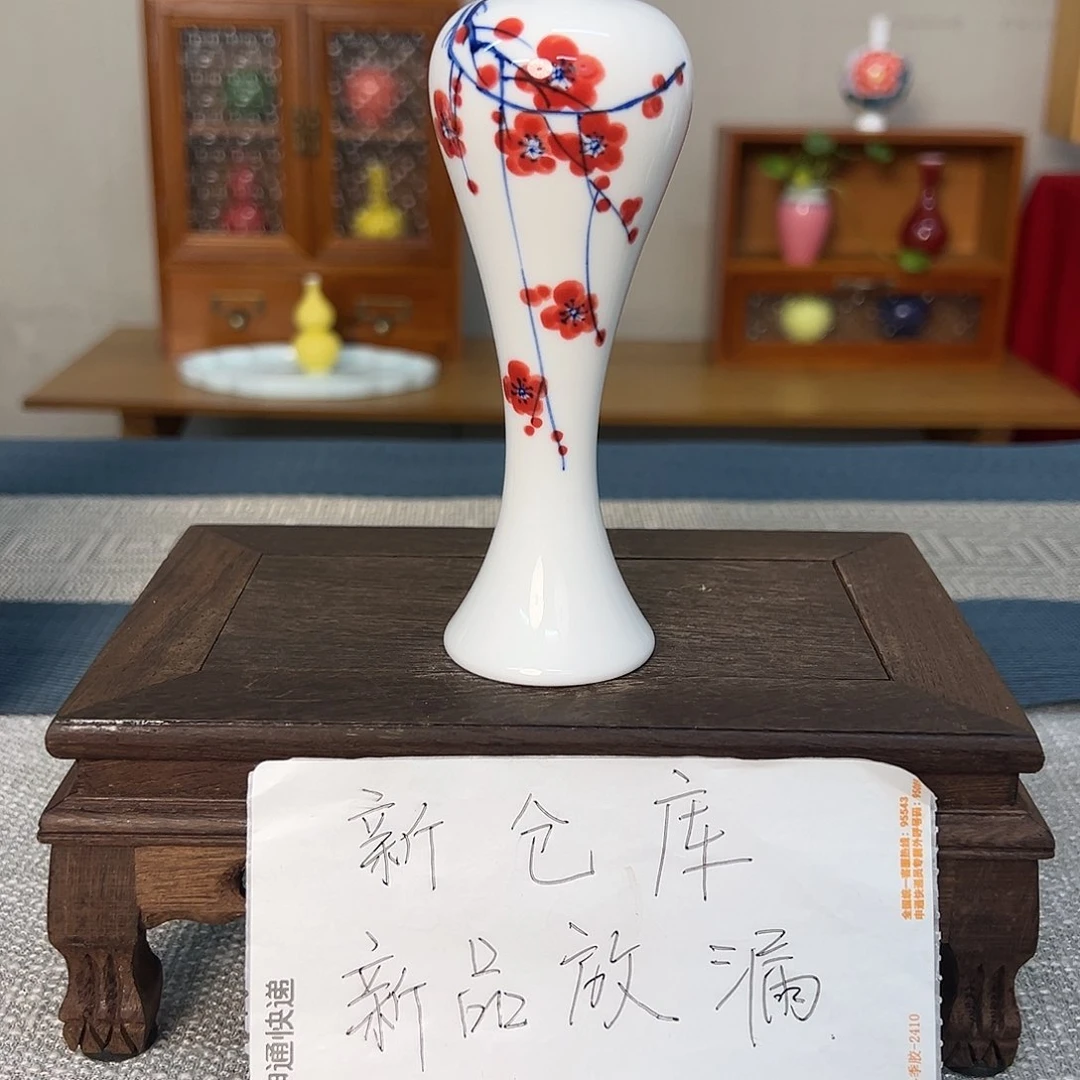 新仓库
新品放漏
全国统一客服热线：95543
申通快递员专属外呼号码：9554
申通快递
季胶-2410